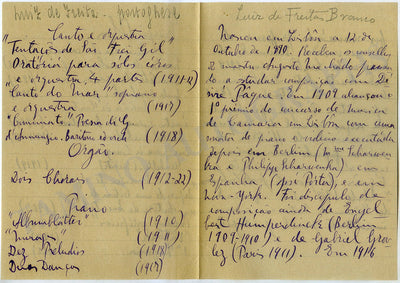 Luiz de Freitas - portoghese
Canto e orquestra
"Tentações de São Frei Gil"
Oratória para solos, córos
e orquestra 4 partes (1911-12)
"Canto do Mar" soprano
e orquestra (1917)
Poema de G.
d'Annunzio. Baritono e orch (1918)
Orgão
Dois Choraes (1912-22)
Piano
"Albumblätter" (1910)
"Mirages" (1911)
Dez Preludios (1918)
Duas Danças (1917)
Luiz de Freitas Branco
Nasceu em Lisbôa a 12 de
Outubro de 1890. Recebeu os conselhos
e mestre Augusto Machado passando
a estudar composição com De-
siré Pâque. Em 1909 alcançou o
1º premio do concurso de musica
de Camara em Lisbôa com uma
sonata de piano e violino executada
depois em Berlim (Mme Scharwen-
ka e Philipp Scharwenka) em
Espanha (José Porta), e em
New-York. Foi discipulo de
composição ainda de Engel-
bert Humperdinck (Berlim
1909-1910) e de Gabriel Gro-
lez (Paris 1911). Em 1916